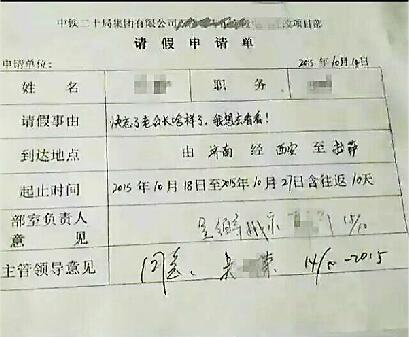 中铁二十局集团有限公司 项目部
请假申请单
申请单位： 2015年10月14日
姓名 职务
请假事由 快忘了老公长啥样了，我想去看看！
到达地点 由 济南 经 西安 至
起止时间 2015年10月18日至2015年10月27日含往返10天
部室负责人意见 15/10
主管领导意见 同意． 14/10-2015